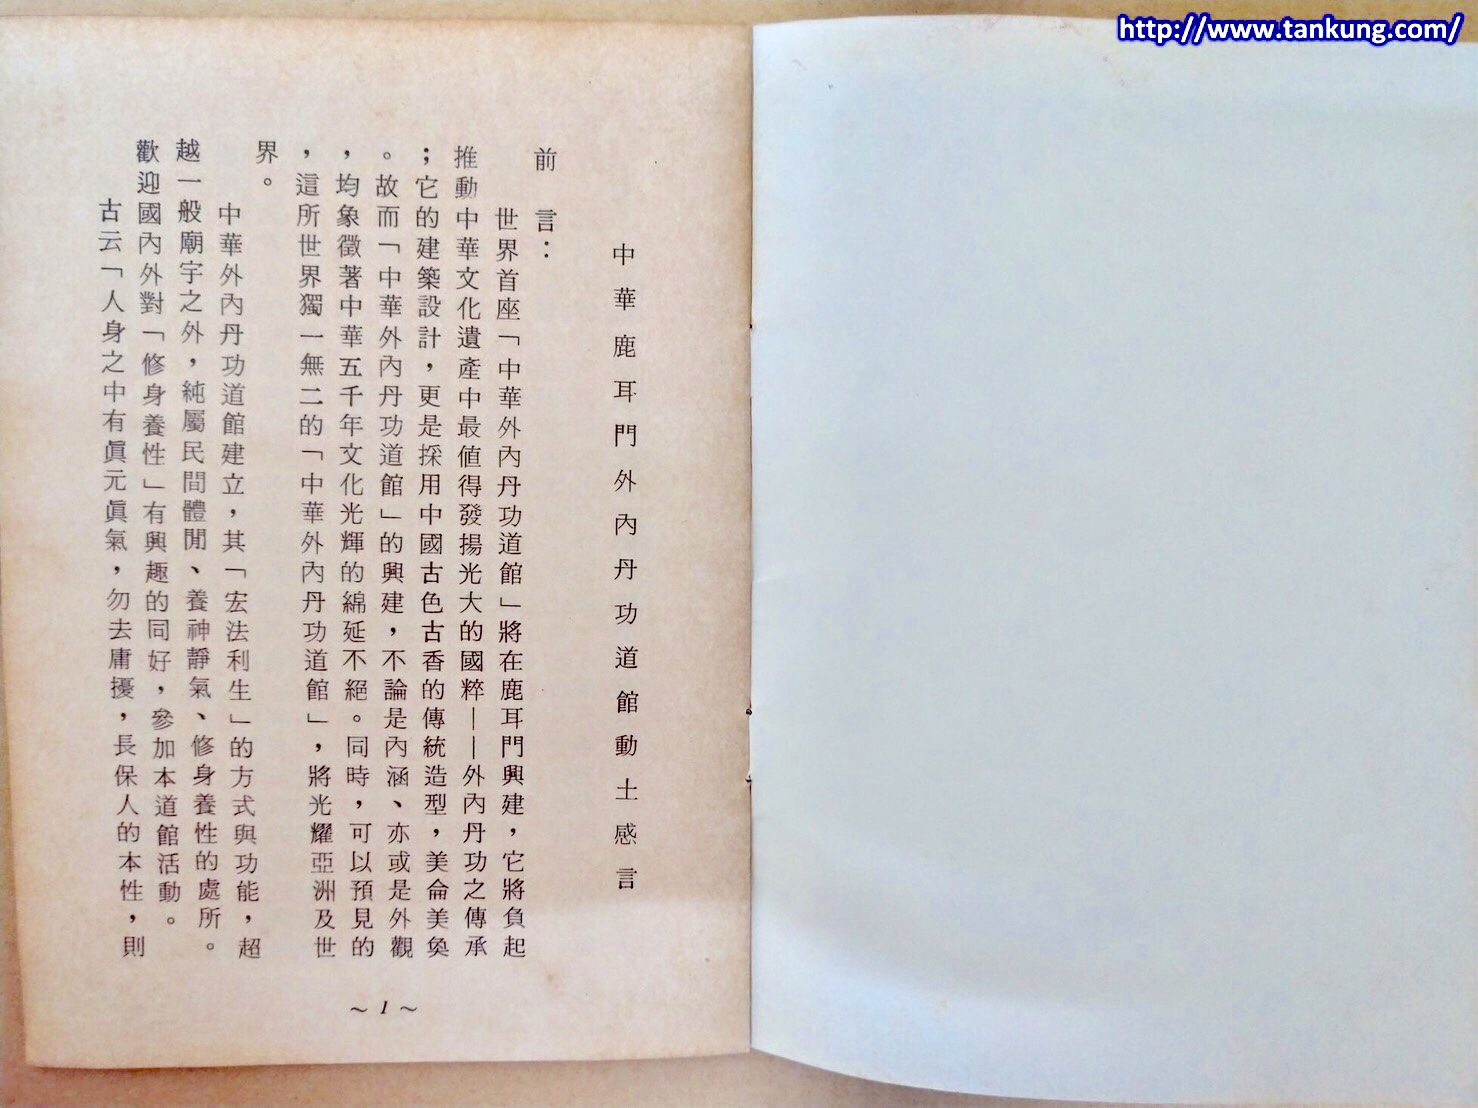 http://www.tankung.com/
中華鹿耳門外內丹功道館動土感言
前言：
世界首座「中華外內丹功道館」將在鹿耳門興建，它將負起
推動中華文化遺產中最值得發揚光大的國粹——外內丹功之傳承
；它的建築設計，更是採用中國古色古香的傳統造型，美侖美奐
。故而「中華外內丹功道館」的興建，不論是內涵、亦或是外觀
，均象徵著中華五千年文化光輝的綿延不絕。同時，可以預見的
，這所世界獨一無二的「中華外內丹功道館」，將光耀亞洲及世
界。
中華外內丹功道館建立，其「宏法利生」的方式與功能，超
越一般廟宇之外，純屬民間體閒、養神靜氣、修身養性的處所。
歡迎國內外對「修身養性」有興趣的同好，參加本道館活動。
古云「人身之中有眞元眞氣，勿去庸擾，長保人的本性，則
～1～